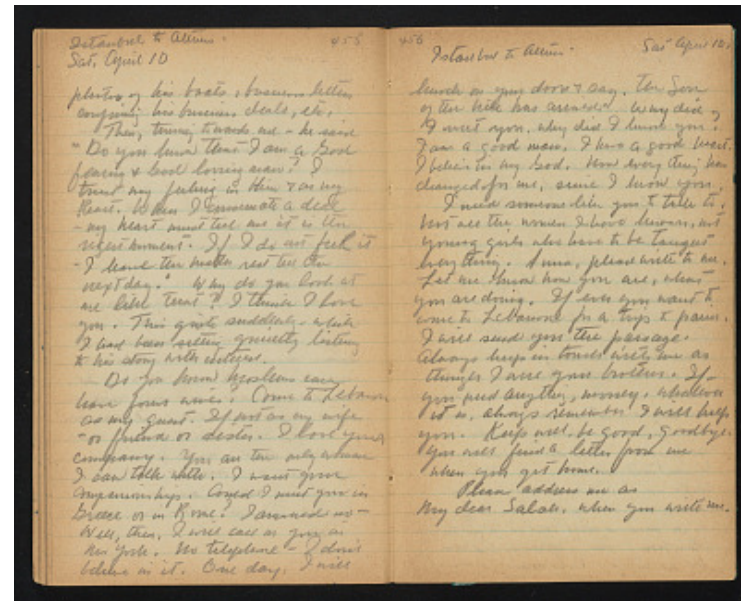 Istanbul to Athens.
455
Sat, April 10
photos of his boats, business letters
confirming his business deals, etc.
Then, turning towards me - he said
"Do you know that I am a God
fearing & God loving man? I
trust my feeling in Him & as my
Heart. When I consumate a deal
- my heart must tell me it is the
right moment. If I do not feel it
- I leave the matter rest till the
next day. Why do you look at
me like that? I think I love
you. This quite suddenly - while
I had been sitting quietly listing
to his story with interest.
Do you know Moslems can
have four wives. Come to Lebanon
as my guest. If not as my wife
- or friend or sister. I love your
company. You are the only woman
I can talk with. I want your
companionship. Could I meet you in
Greece or in Rome? I answered no -
Well, then, I will call on you in
New York. No telephone - I don't
believe in it. One day, I will
456
Istanbul to Athens.
Sat April 10.
knock on your door & say, the Son
of the has arrived. Why did
I meet you, why did I know you.
I am a good man. I have a good heart.
I believe in my God. Now every thing has
changed for me, since I know you.
I need someone like you to talk to.
Not all the women I have known, not
young girls who have to be taught
everything. Anna, please write to me.
Let me know how you are, what
you are doing. If ever you want to
come to Lebanon for a trip to paint.
I will send you the passage.
Always keep in touch with me as
though I were your brother. If
you need anything, money, whatever
it is, always remember I will help
you. Keep well, be good, goodbye.
You will find a letter from me
when you get home.
Please address me as
My dear Salah, when you write me.